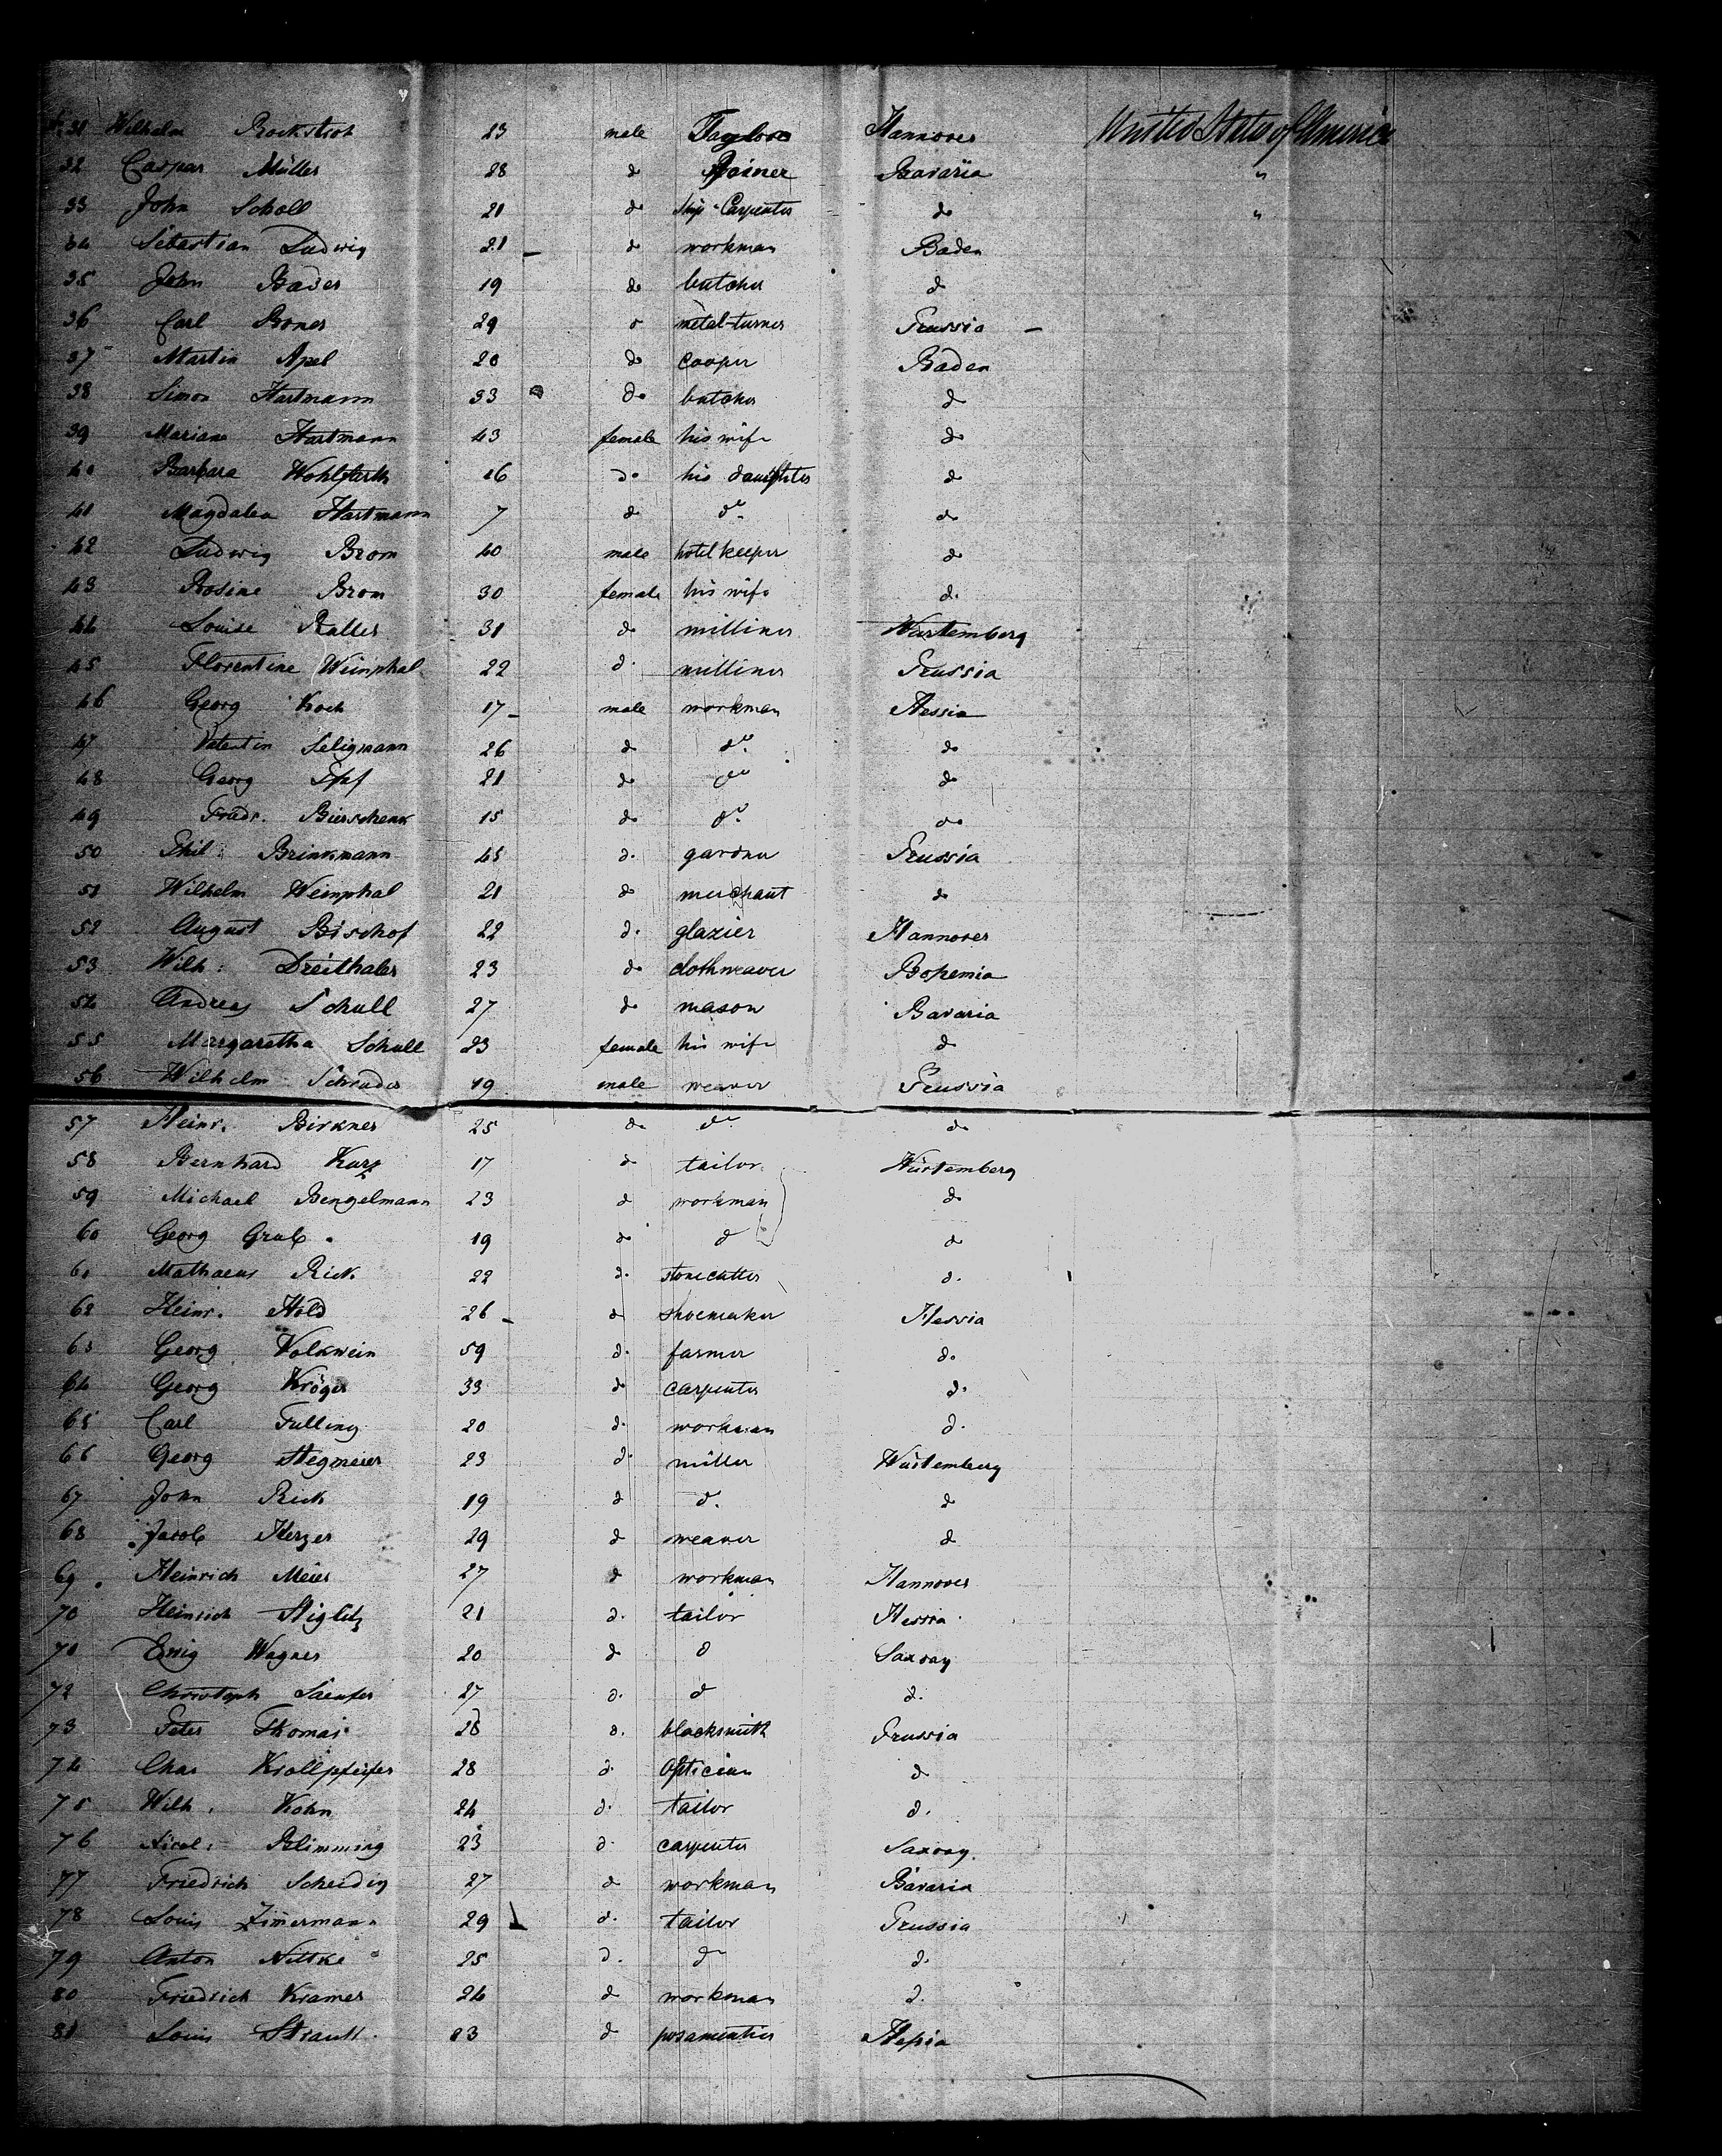 31 Wilhelm Rockstroh 23 male Taylor Hannover United States of America
32 Caspar Müller 28 do Joiner Bavaria "
33 John Scholl 21 do Ship-Carpenter do "
34 Sebastian Ludwig 21 do workman Baden
35 John Bader 19 do butcher d
36 Carl Boner 29 o metal-turner Prussia
37 Martin Apel 20 do cooper Baden
38 Simon Hartmann 33 do butcher d
39 Mariane Hartmann 43 female his wife do
40 Barbara Wohlfarth 16 do his daughter d
41 Magdalea Hartmann 7 d do do
42 Ludwig Brom 40 male hotelkeeper do
43 Rosine Brom 30 female his wife d.
44 Louise Raller 31 do milliner Würtemberg
45 Florentine Weinphal 22 d. milliner Prussia
46 Georg Koch 17 male workman Hessia
47 Valentin Seligmann 26 d do do
48 Georg 21 do do do
49 Friedr. Bierschenk 15 do do do
50 Phil: Brinkmann 45 d. gardner Prussia
51 Wilhelm Weinphal 21 do merchant do
52 August Bischof 22 d. glazier Hannover
53 Wilh: Dreithaler 23 do clothweaver Bohemia
54 Andreas Schull 27 do mason Bavaria
55 Margaretha Schull 23 female his wife d
56 Wilhelm Schrader 19 male weaver Prussia
57 Heinr. Birkner 25 do do do
58 Bernhard Kurz 17 d tailor Würtemberg
59 Michael Bengelmann 23 d workman d
60 Georg Grab 19 do d do
61 Mathaeus Rick 22 d. stonecutter d.
62 Heinr. Hold 26 d shoemaker Hessia
63 Georg Volkwein 59 d. farmer d.
64 Georg Kröger 33 do carpenter d.
65 Carl Fulling 20 d. workman d.
66 Georg Stegmeier 23 d. miller Würtemberg
67 John Rick 19 d d. d
68 Jacob Herzer 29 d weaver d
69 Heinrich Meier 27 d workman Hannover
70 Heinrich Stiglitz 21 d. tailor Hessia
71 Wagner 20 d d Saxony
72 Christoph 27 d. d d.
73 Peter Thomas 28 d. blacksmith Prussia
74 Chas Krollpfeifer 28 d. Optician d
75 Wilh. Kohn 24 d. tailor d.
76 Nicol: Blimming 23 d. carpenter Saxony.
77 Friedrich Scheidig 27 d workman Bavaria
78 Louis Zimermann 29 d. tailor Prussia
79 Anton Nittke 25 d. d d.
80 Friedrich Kramer 24 d workman d.
81 Louis Strauss 23 d posamentier Hessia